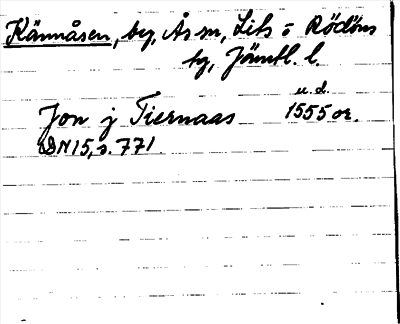 Kännåsen, by, Ås sn, Lits o Rödöns
tg, Jämtl. l.
u. d.
Jon j Tiernaas 1555 or.
DN 15, s. 771.